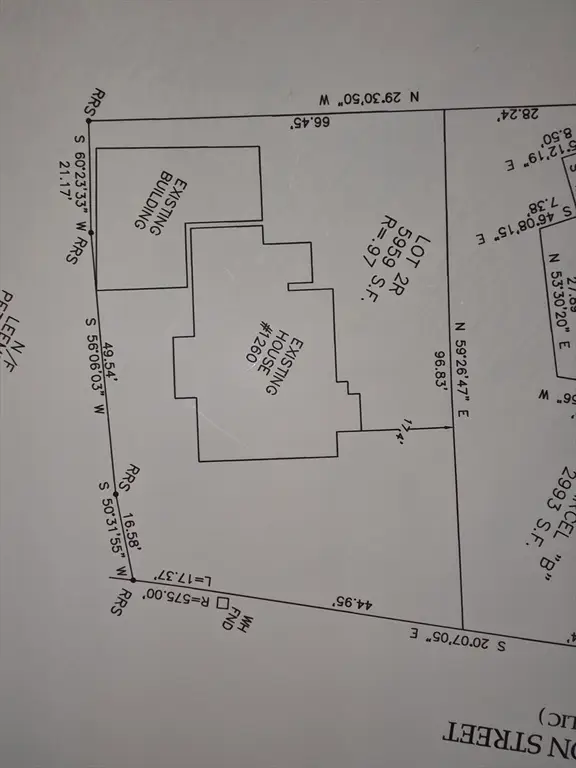 N 29°30'50" W
66.45'
28.24'
RRS
S 60°23'33" W
21.17'
RRS
EXISTING
BUILDING
LOT 2R
5959 S.F.
R=.97
8.50'
5°12'19" E
7.38'
S 46°08'15" E
N 53°30'20" E
27.89
N/F
EXISTING
HOUSE
#1260
N 59°26'47" E
96.83'
17.4'
49.54'
S 56°06'03" W
RRS
16.58'
S 50°31'55" W
RRS
L=17.37'
R=575.00'
WH
FND
44.95'
S 20°07'05" E
56" W
CEL "B"
2993 S.F.
ON STREET
LIC)